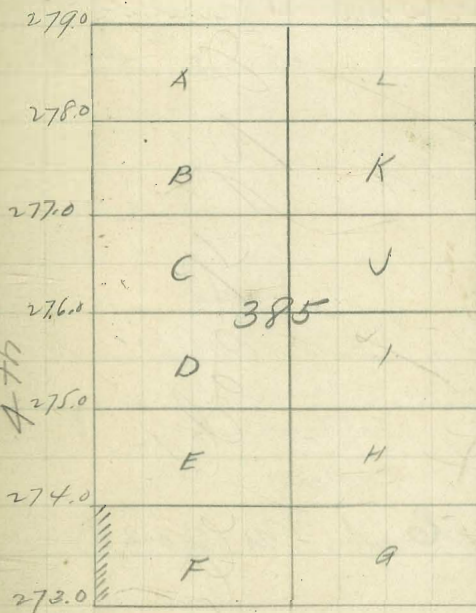 279.0
A L
278.0
B K
277.0
C J
276.0
385
D I
4th
275.0
E H
274.0
F G
273.0